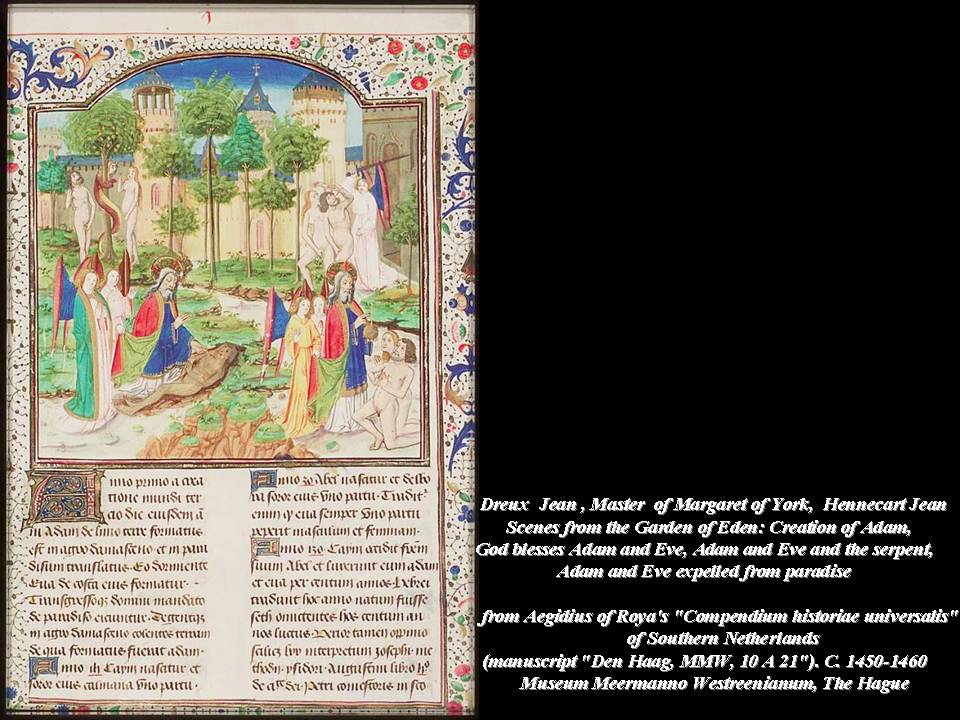 Anno primo a crea
tione mundi ter
cio die eiusdem
Adam de limo terre formatus
est in agro damasceno et in para
disum translatus. Eo dormiente
Eua de costa eius formatur.
domini mandato
de paradiso eiciuntur.
in agro damasceno colentes terram
de qua formatus fuerat adam.
Anno iii Caym nascitur et
soror eius calmana vno partu.
Anno 30 Abel nascitur et delbo
ra soror eius vno partu. Tradit
enim eua semper vno partu
peperit masculum et feminam.
Anno 130. Caym occidit
suum Abel et luxerunt eum adam
et eua per centum annos. Hebrei
tradunt hoc anno natum fuisse
seth omittentes hos centum an
nos luctus. Verior tamen opinio
lxx interpretum Josephi me
ysidori Augustini libro
de dei. Petri comestoris in sco
Dreux Jean , Master of Margaret of York, Hennecart Jean
Scenes from the Garden of Eden: Creation of Adam,
God blesses Adam and Eve, Adam and Eve and the serpent,
Adam and Eve expelled from paradise
from Aegidius of Roya's "Compendium historiae universalis"
of Southern Netherlands
(manuscript "Den Haag, MMW, 10 A 21"). C. 1450-1460
Museum Meermanno Westreenianum, The Hague